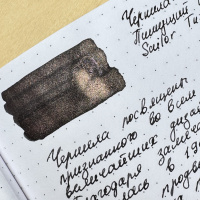 Чернила
Пишущий
Sailor Tu
Чернила посвящены
признанного во всем
величайших дизай
благодаря замеча
в 19
лась
продви